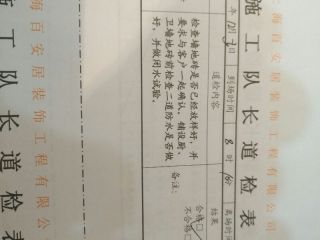 海百安居装饰工程有限公
施工队长道检表
年12月 日 到场时间 8时 分 离场时
道检内容
结果
检查墙地砖是否已经放样好，并
要求与客户一起确认，铺设厨、
卫墙地砖前检查二道防水是否做
好，并做闭水试验。
合格□
不合格□
备注：
海百安居装饰工程有限公司
施工队长道检表